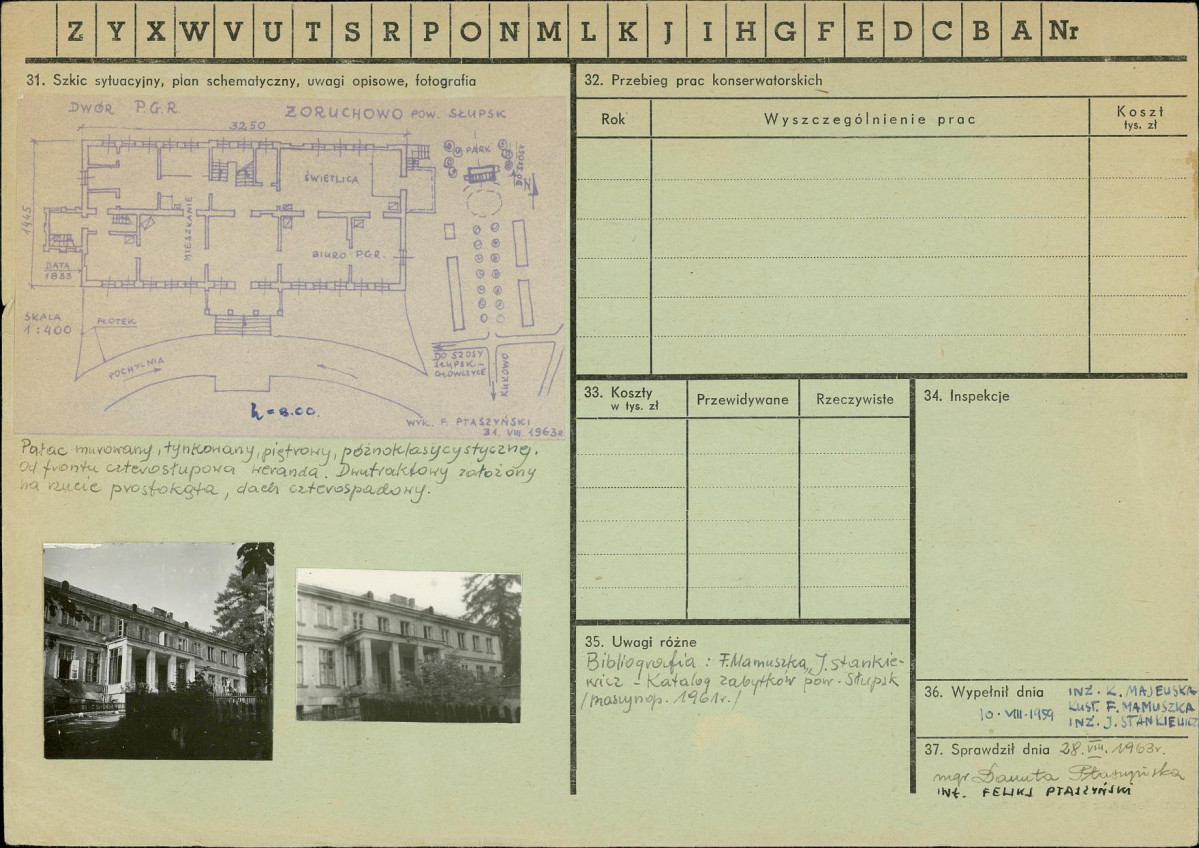 Z Y X W V U T S R P O N M L K J I H G F E D C B A Nr
31. Szkic sytuacyjny, plan schematyczny, uwagi opisowe, fotografia
DWÓR P.G.R. ZORUCHOWO POW. SŁUPSK
3250
1445
ŚWIETLICA
MIESZKANIE
BIURO PGR.
DATA
1833
SKALA
1:400
PŁOTEK
POCHYLNIA
h = 8.00.
PARK
DO SZOSY
N
DO SZOSY
SŁUPSK-
GŁÓWCZYCE
KUKOWO
WYK. F. PTASZYŃSKI
31. VIII. 1963r.
Pałac murowany, tynkowany, piętrowy, późnoklasycystyczny.
Od frontu czterosłupowa weranda. Dwutraktowy założony
na rzucie prostokąta, dach czterospadowy.
32. Przebieg prac konserwatorskich
Rok
Wyszczególnienie prac
Koszt
tys. zł
33. Koszty
w tys. zł
Przewidywane
Rzeczywiste
34. Inspekcje
35. Uwagi różne
Bibliografia: F. Mamuszka, J. Stankie-
wicz - Katalog zabytków pow. Słupsk
/maszynop. 1961r./
36. Wypełnił dnia
10. VIII. 1959
INŻ. K. MAJEWSKA
KUST. F. MAMUSZKA
INŻ. J. STANKIEWICZ
37. Sprawdził dnia 28. VIII. 1963r.
mgr Danuta Ptaszyńska
INŻ. FELIKS PTASZYŃSKI